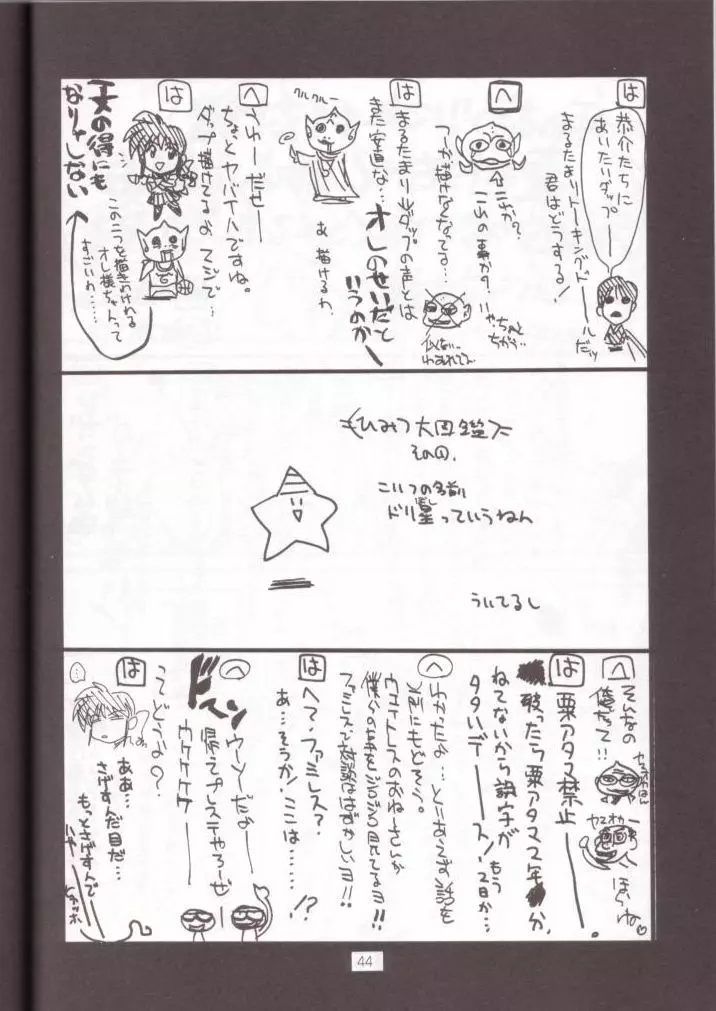 は
恭介たちに
あいたいダップ
まるたまりトーキンベドールだッ
君はどうする!
へ
これか?
つーか描けなくなってる…
ちがう…
は
まるたまりψダップの声とは
また安直な…
オレのせいだと
いうのか
クルクルー
あ 描けるわ
へ
うわーだせー
ちょっとヤバイハですね。
ダップ描けてるよ マジで…
は
この二つを描きわけれる
オレ様ちゃんって
すごいわ……
なりゃしない
ひみつ大図鑑
その①.
こいつの名前
ドリ星っていうねん
ほし
ういてるし
へ
そんなの
俺だって!!
ほらね
は
栗アタマ禁止
破ったら栗アタマ2年か.
ねてないから誤字が
もう2日か…
タタいデースッ!
へ
わかったよ…とりあえず話を
元にもどそう。
ウェイトレスのおねーさんが
僕らの事をジロジロ見てるヨ!!
ファミレスで対談ははずかしいヨ!!
は
へ?ファミレス?
あ…そうか!ここは……!?
へ
ドスン
ウーソだよー
帰ってプレステやろーぜ
ウケケケケー
は
ってどうよ?
ああ…
さげすんだ目だ…
もっとさげすんで
ハァー
44